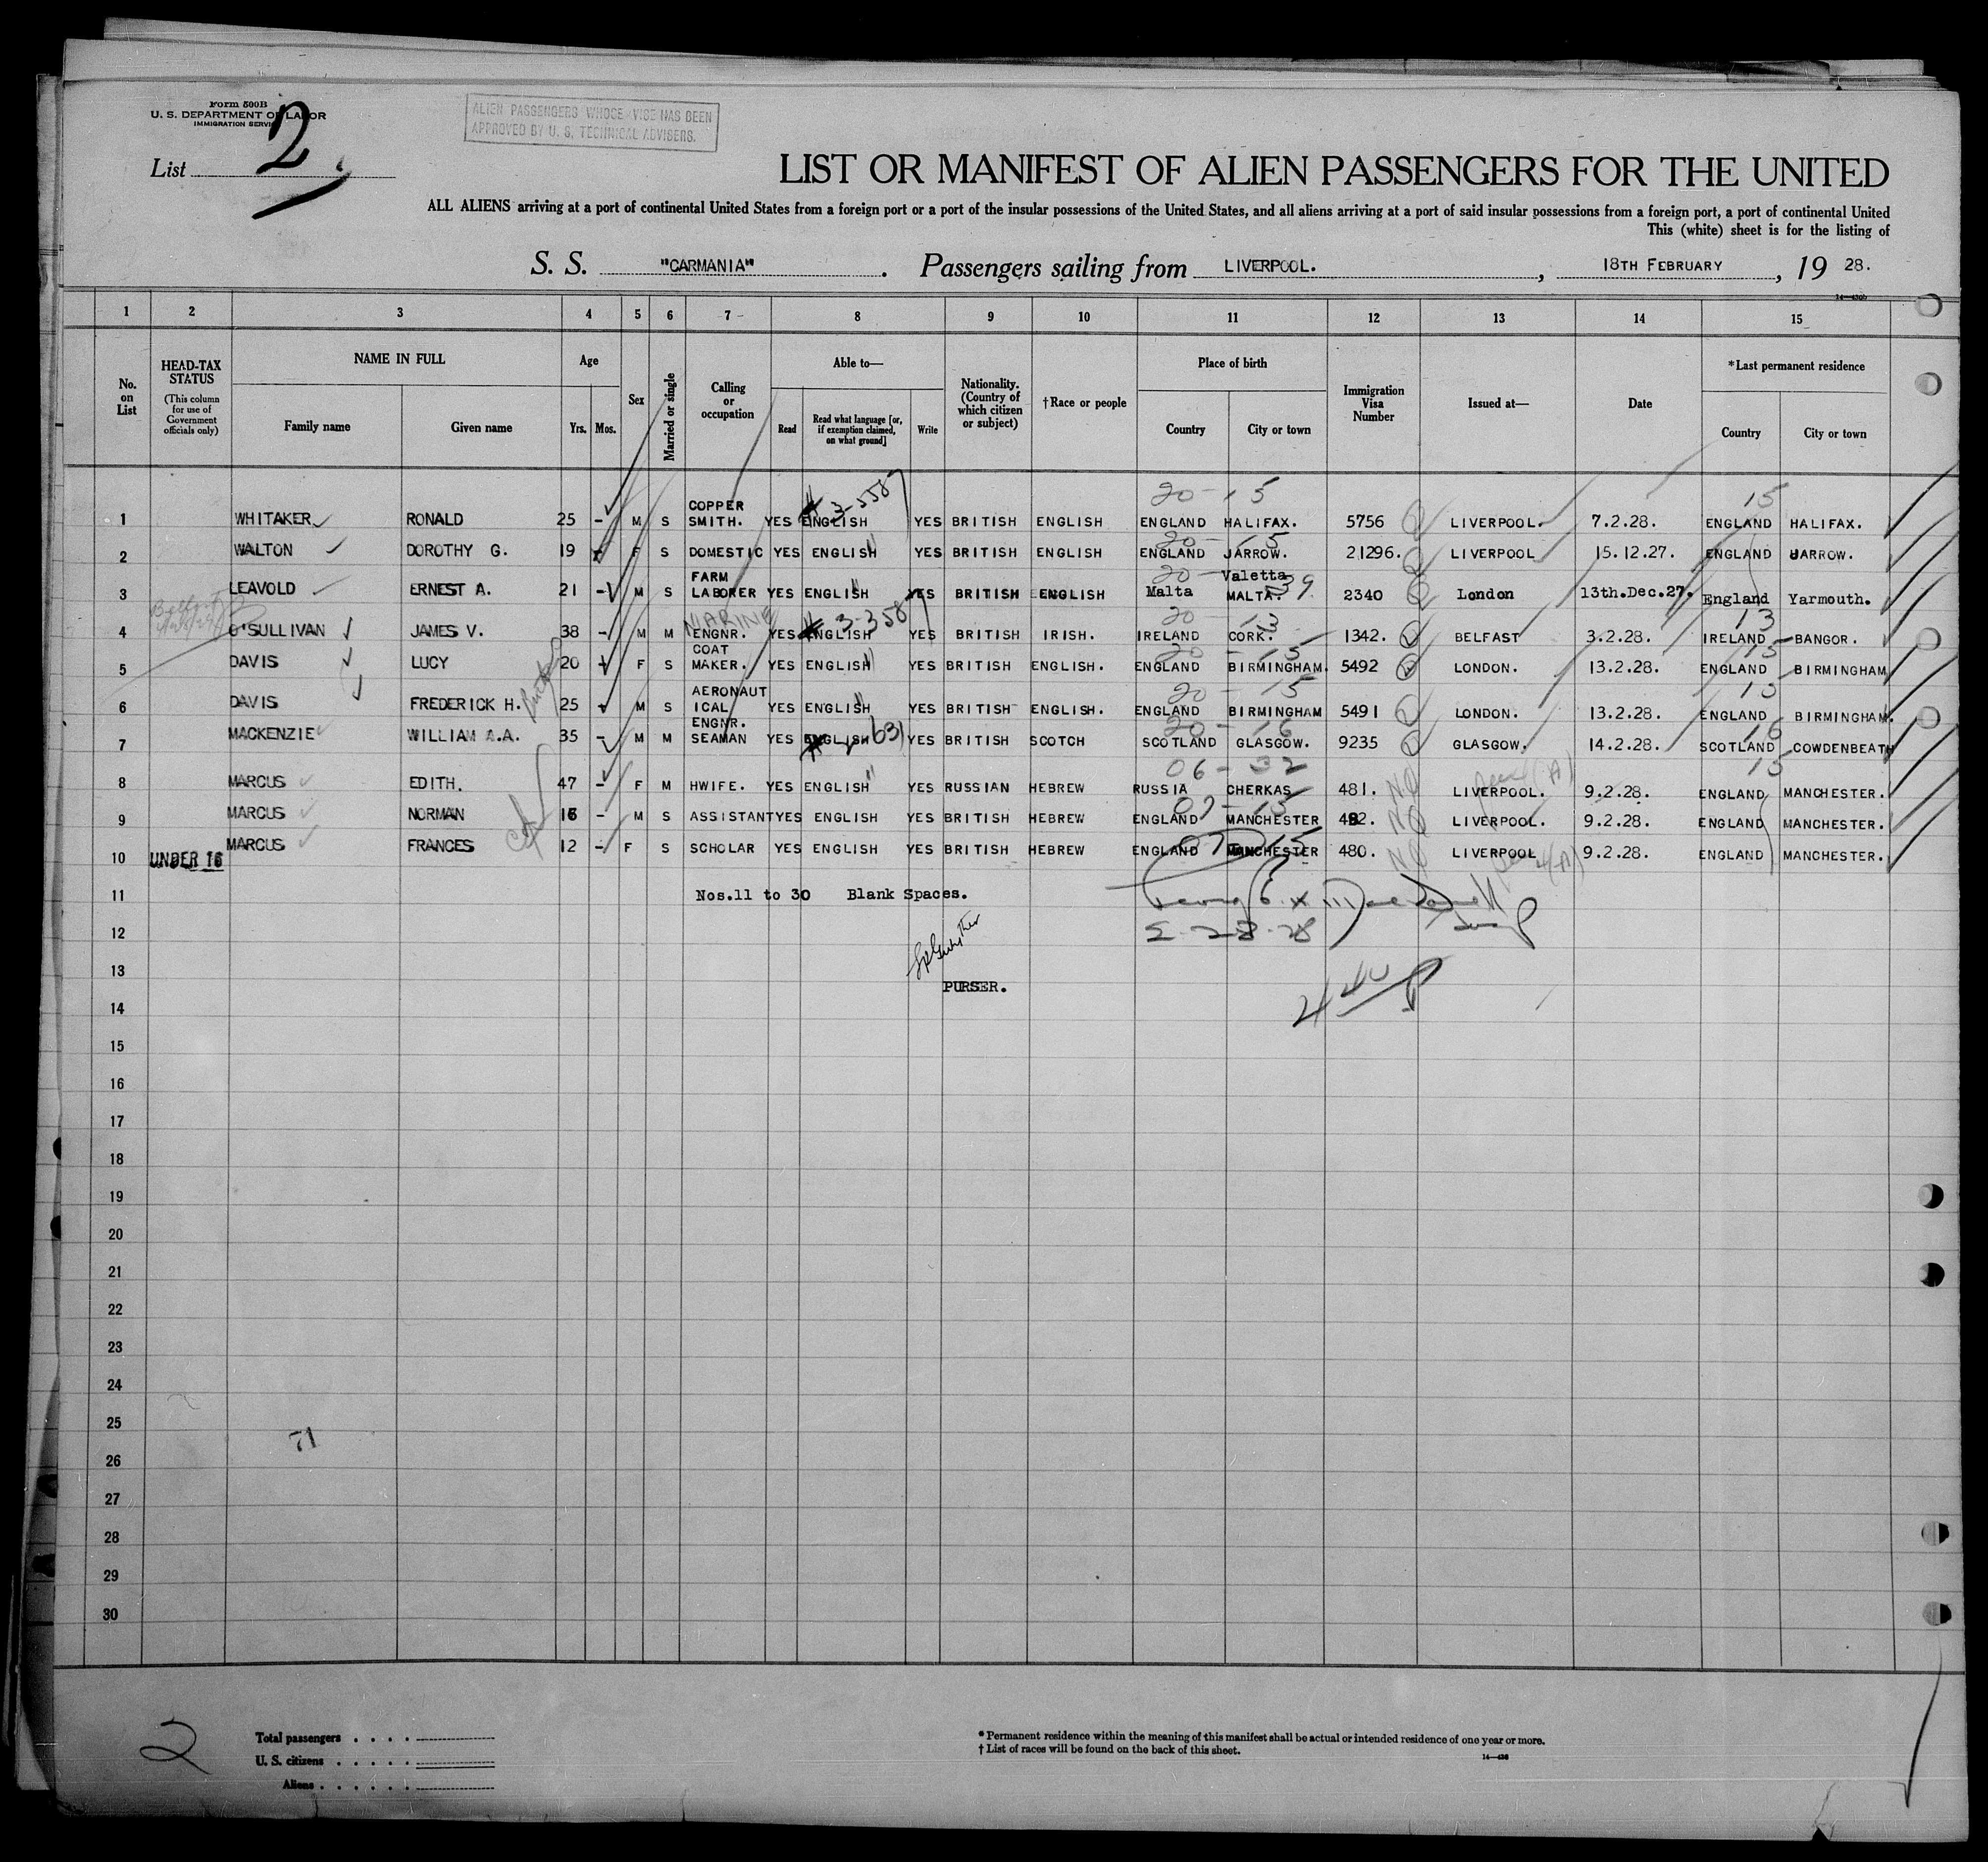 Form 500B
U. S. DEPARTMENT OF LABOR
IMMIGRATION SERVICE
ALIEN PASSENGERS WHOSE VISE HAS BEEN
APPROVED BY U. S. TECHNICAL ADVISERS.
List 2
LIST OR MANIFEST OF ALIEN PASSENGERS FOR THE UNITED
ALL ALIENS arriving at a port of continental United States from a foreign port or a port of the insular possessions of the United States, and all aliens arriving at a port of said insular possessions from a foreign port, a port of continental United
This (white) sheet is for the listing of
S. S. "CARMANIA". Passengers sailing from LIVERPOOL., 18TH FEBRUARY, 19 28.
1 2 3 4 5 6 7 8 9 10 11 12 13 14 15
No. on List
HEAD-TAX STATUS
(This column for use of Government officials only)
NAME IN FULL
Family name Given name
Age
Yrs. Mos.
Sex
Married or single
Calling or occupation
Able to—
Read
Read what language [or, if exemption claimed, on what ground]
Write
Nationality. (Country of which citizen or subject)
†Race or people
Place of birth
Country City or town
Immigration Visa Number
Issued at—
Date
*Last permanent residence
Country City or town
20 - 15 15
1 WHITAKER RONALD 25 - M S COPPER SMITH. YES ENGLISH YES BRITISH ENGLISH ENGLAND HALIFAX. 5756 LIVERPOOL. 7.2.28. ENGLAND HALIFAX.
20 - 15
2 WALTON DOROTHY G. 19 - F S DOMESTIC YES ENGLISH YES BRITISH ENGLISH ENGLAND JARROW. 21296. LIVERPOOL 15.12.27. ENGLAND JARROW.
20 - 39
3 LEAVOLD ERNEST A. 21 - M S FARM LABORER YES ENGLISH YES BRITISH ENGLISH Malta Valetta MALTA. 2340 London 13th.Dec.27. England Yarmouth.
20 - 13 13
4 O'SULLIVAN JAMES V. 38 - M M MARINE ENGNR. YES ENGLISH YES BRITISH IRISH. IRELAND CORK. 1342. BELFAST 3.2.28. IRELAND BANGOR.
20 - 15 15
5 DAVIS LUCY 20 - F S COAT MAKER. YES ENGLISH YES BRITISH ENGLISH. ENGLAND BIRMINGHAM. 5492 LONDON. 13.2.28. ENGLAND BIRMINGHAM
20 - 15 15
6 DAVIS FREDERICK H. 25 - M S AERONAUTICAL ENGNR. YES ENGLISH YES BRITISH ENGLISH. ENGLAND BIRMINGHAM 5491 LONDON. 13.2.28. ENGLAND BIRMINGHAM.
20 - 16 16
7 MACKENZIE WILLIAM A.A. 35 - M M SEAMAN YES ENGLISH YES BRITISH SCOTCH SCOTLAND GLASGOW. 9235 GLASGOW. 14.2.28. SCOTLAND COWDENBEATH
06 - 32 15
8 MARCUS EDITH. 47 - F M HWIFE. YES ENGLISH YES RUSSIAN HEBREW RUSSIA CHERKAS 481. NQ LIVERPOOL. 9.2.28. ENGLAND MANCHESTER.
07 - 15
9 MARCUS NORMAN 16 - M S ASSISTANT YES ENGLISH YES BRITISH HEBREW ENGLAND MANCHESTER 482. NQ LIVERPOOL. 9.2.28. ENGLAND MANCHESTER.
07 - 15
10 UNDER 16 MARCUS FRANCES 12 - F S SCHOLAR YES ENGLISH YES BRITISH HEBREW ENGLAND MANCHESTER 480. NQ LIVERPOOL 9.2.28. ENGLAND MANCHESTER.
11 Nos.11 to 30 Blank Spaces.
12
13 PURSER.
14
15
16
17
18
19
20
21
22
23
24
25
71
26
27
28
29
30
2
Total passengers
U. S. citizens
Aliens
* Permanent residence within the meaning of this manifest shall be actual or intended residence of one year or more.
† List of races will be found on the back of this sheet.